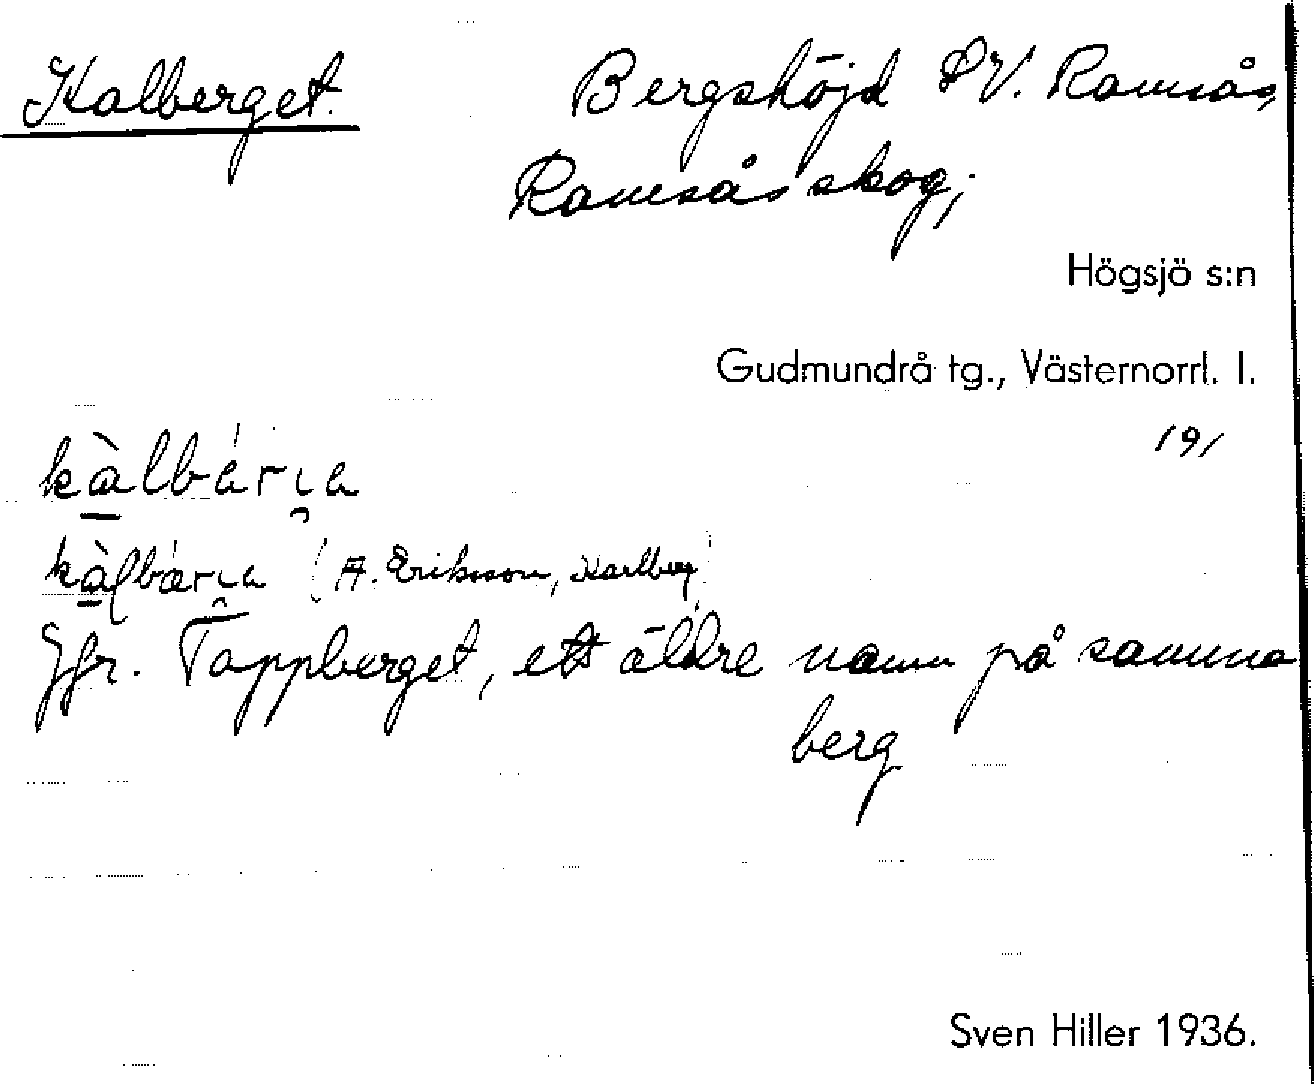 Kalberget. Bergshöjd SV. Ramsås,
Ramsås skog;
Högsjö s:n
Gudmundrå tg., Västernorrl. l.
191
kàlbárıa
kàlbárıa (A. Eriksson, Karlberg)
Jfr. Tappberget, ett äldre namn på samma
berg
Sven Hiller 1936.